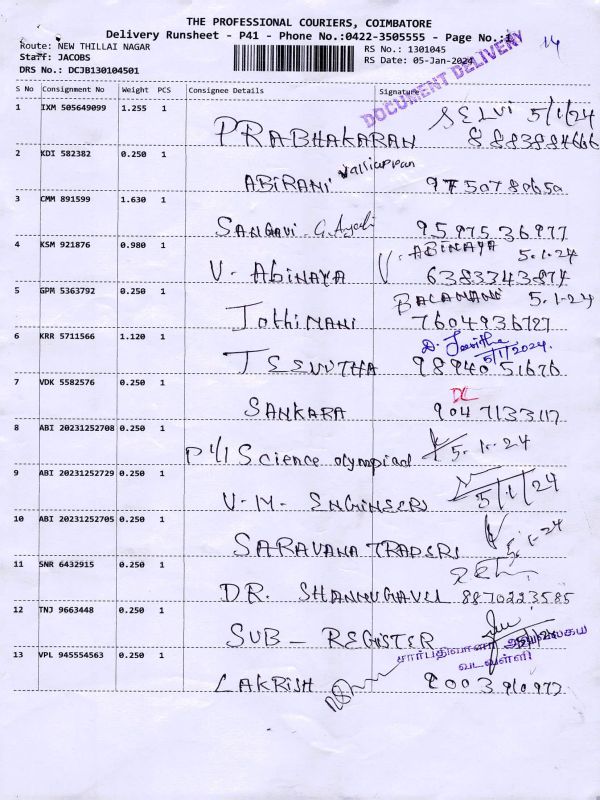 THE PROFESSIONAL COURIERS, COIMBATORE
Delivery Runsheet - P41 - Phone No.:0422-3505555 - Page No.:1
14
Route: NEW THILLAI NAGAR
RS No.: 1301045
Staff: JACOBS
RS Date: 05-Jan-2024
DRS No.: DCJB130104501
DOCUMENT DELIVERY
S No Consignment No Weight PCS Consignee Details Signature
1 IXM 505649099 1.255 1
SELVI 5/1/24
PRABHAKARAN
2 KDI 582382 0.250 1
Valliappan
ABIRANI
3 CMM 891599 1.630 1
SANGAVI - 9597536977
4 KSM 921876 0.980 1
V. ABINAYA 5.1.24
V. ABINAYA 6383343874
5 GPM 5363792 0.250 1
BALAMANI 5.1.24
JOTHIMANI 7604936727
6 KRR 5711566 1.120 1
D. Jeevitha 5/1/2024.
JEEVITHA 98940 51676
7 VDK 5582576 0.250 1
DL
SANKARA 9047133117
8 ABI 20231252708 0.250 1
5.1.24
Science olympiad
9 ABI 20231252729 0.250 1
5/1/24
V.M. ENGINEERS
10 ABI 20231252705 0.250 1
5.1.24
SARAVANA TRADERS
11 SNR 6432915 0.250 1
DR. SHANMUGAVEL 8870223585
12 TNJ 9663448 0.250 1
SUB - REGISTER
சார்பதிவாளர் அலுவலகம்
வடவள்ளி
13 VPL 945554563 0.250 1
LAKRISH